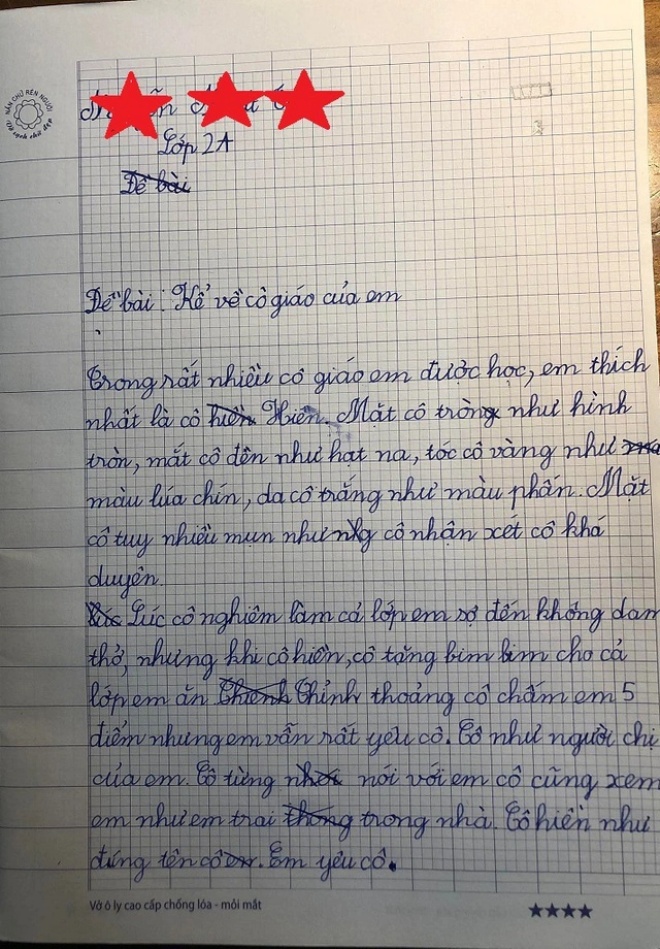 NẮN CHỮ RÈN NGƯỜI
Lớp 2A
Đề bài
Đề bài: Kể về cô giáo của em
Trong rất nhiều cô giáo em được học, em thích
nhất là cô hiền Hiền. Mặt cô tròng như hình
tròn, mắt cô đên như hạt na, tóc cô vàng như
màu lúa chín, da cô trắng như màu phấn. Mặt
cô tuy nhiều mụn như nhg cô nhận xét cô khá
duyên.
Lúc Lúc cô nghiêm làm cả lớp em sợ đến không dam
thở, nhưng khi cô hiền, cô tặng bim bim cho cả
lớp em ăn Thienh Thỉnh thoảng cô chấm em 5
điểm nhưng em vẫn rất yêu cô. Cô như người chị
của em. Cô từng nói với em cô cũng xem
em như em trai thong trong nhà. Cô hiền như
đúng tên cô em. Em yêu cô.
Vở ô ly cao cấp chống lóa - mỏi mắt